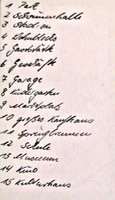 1 Park
2 Schwimmhalle
3 Stadion
4 Wohnblocks
5 Gaststätte
6 Geschäft
7 Garage
8 Kindergarten
9 Marktplatz
10 großes Kaufhaus
11 Springbrunnen
12 Schule
13 Museum
14 Kino
15 Kulturhaus